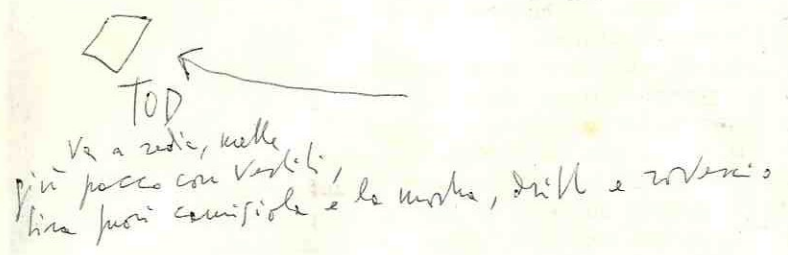 TOD
Va a sedia, mette
giù pacco con vestiti,
tira fuori camigiola e la mostra, dritto e rovescio